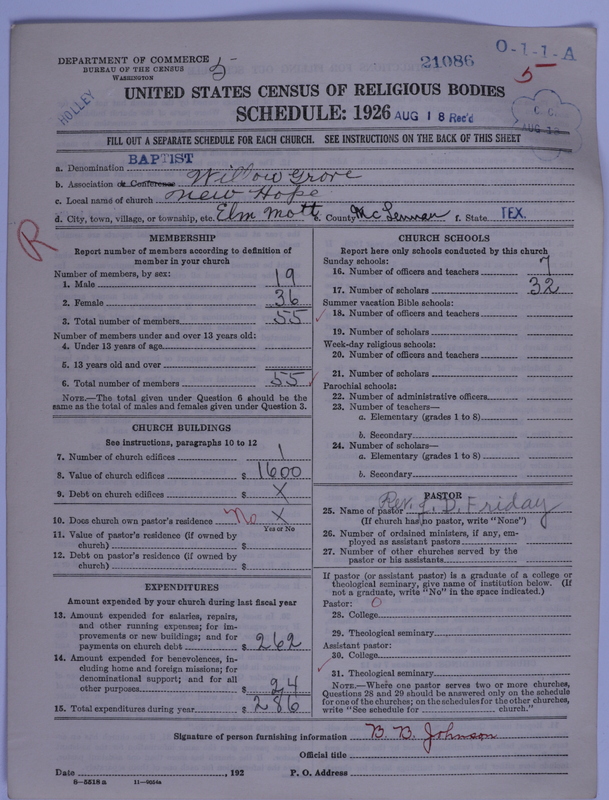 DEPARTMENT OF COMMERCE
BUREAU OF THE CENSUS
WASHINGTON
5
21086
O-1-1-A
5
HOLLEY
UNITED STATES CENSUS OF RELIGIOUS BODIES
SCHEDULE: 1926 AUG 18 Rec'd
FILL OUT A SEPARATE SCHEDULE FOR EACH CHURCH. SEE INSTRUCTIONS ON THE BACK OF THIS SHEET
a. Denomination BAPTIST
b. Association or Conference Willow Grove
c. Local name of church New Hope
d. City, town, village, or township, etc. Elm Mott e. County McLennan f. State TEX.
R
MEMBERSHIP
Report number of members according to definition of
member in your church
Number of members, by sex:
1. Male 19
2. Female 36
3. Total number of members 55
Number of members under and over 13 years old:
4. Under 13 years of age
5. 13 years old and over
6. Total number of members 55
NOTE.—The total given under Question 6 should be the
same as the total of males and females given under Question 3.
CHURCH BUILDINGS
See instructions, paragraphs 10 to 12
7. Number of church edifices 1
8. Value of church edifices $ 1600
9. Debt on church edifices $ X
10. Does church own pastor's residence No X
Yes or No
11. Value of pastor's residence (if owned by
church) $
12. Debt on pastor's residence (if owned by
church) $
EXPENDITURES
Amount expended by your church during last fiscal year
13. Amount expended for salaries, repairs,
and other running expenses; for im-
provements or new buildings; and for
payments on church debt $ 262
14. Amount expended for benevolences, in-
cluding home and foreign missions; for
denominational support; and for all
other purposes $ 24
15. Total expenditures during year $ 286
CHURCH SCHOOLS
Report here only schools conducted by this church
Sunday schools:
16. Number of officers and teachers 7
17. Number of scholars 32
Summer vacation Bible schools:
18. Number of officers and teachers
19. Number of scholars
Week-day religious schools:
20. Number of officers and teachers
21. Number of scholars
Parochial schools:
22. Number of administrative officers
23. Number of teachers—
a. Elementary (grades 1 to 8)
b. Secondary
24. Number of scholars—
a. Elementary (grades 1 to 8)
b. Secondary
PASTOR
25. Name of pastor Rev. J. D. Friday
(If church has no pastor, write "None")
26. Number of ordained ministers, if any, em-
ployed as assistant pastors
27. Number of other churches served by the
pastor or his assistants
If pastor (or assistant pastor) is a graduate of a college or
theological seminary, give name of institution below. (If
not a graduate, write "No" in the space indicated.)
Pastor: O
28. College
29. Theological seminary
Assistant pastor:
30. College
31. Theological seminary
NOTE.—Where one pastor serves two or more churches,
Questions 28 and 29 should be answered only on the schedule
for one of the churches; on the schedules for the other churches,
write "See schedule for church."
Signature of person furnishing information B. B. Johnson
Official title
Date , 192 P. O. Address
8-5518a 11-9054a